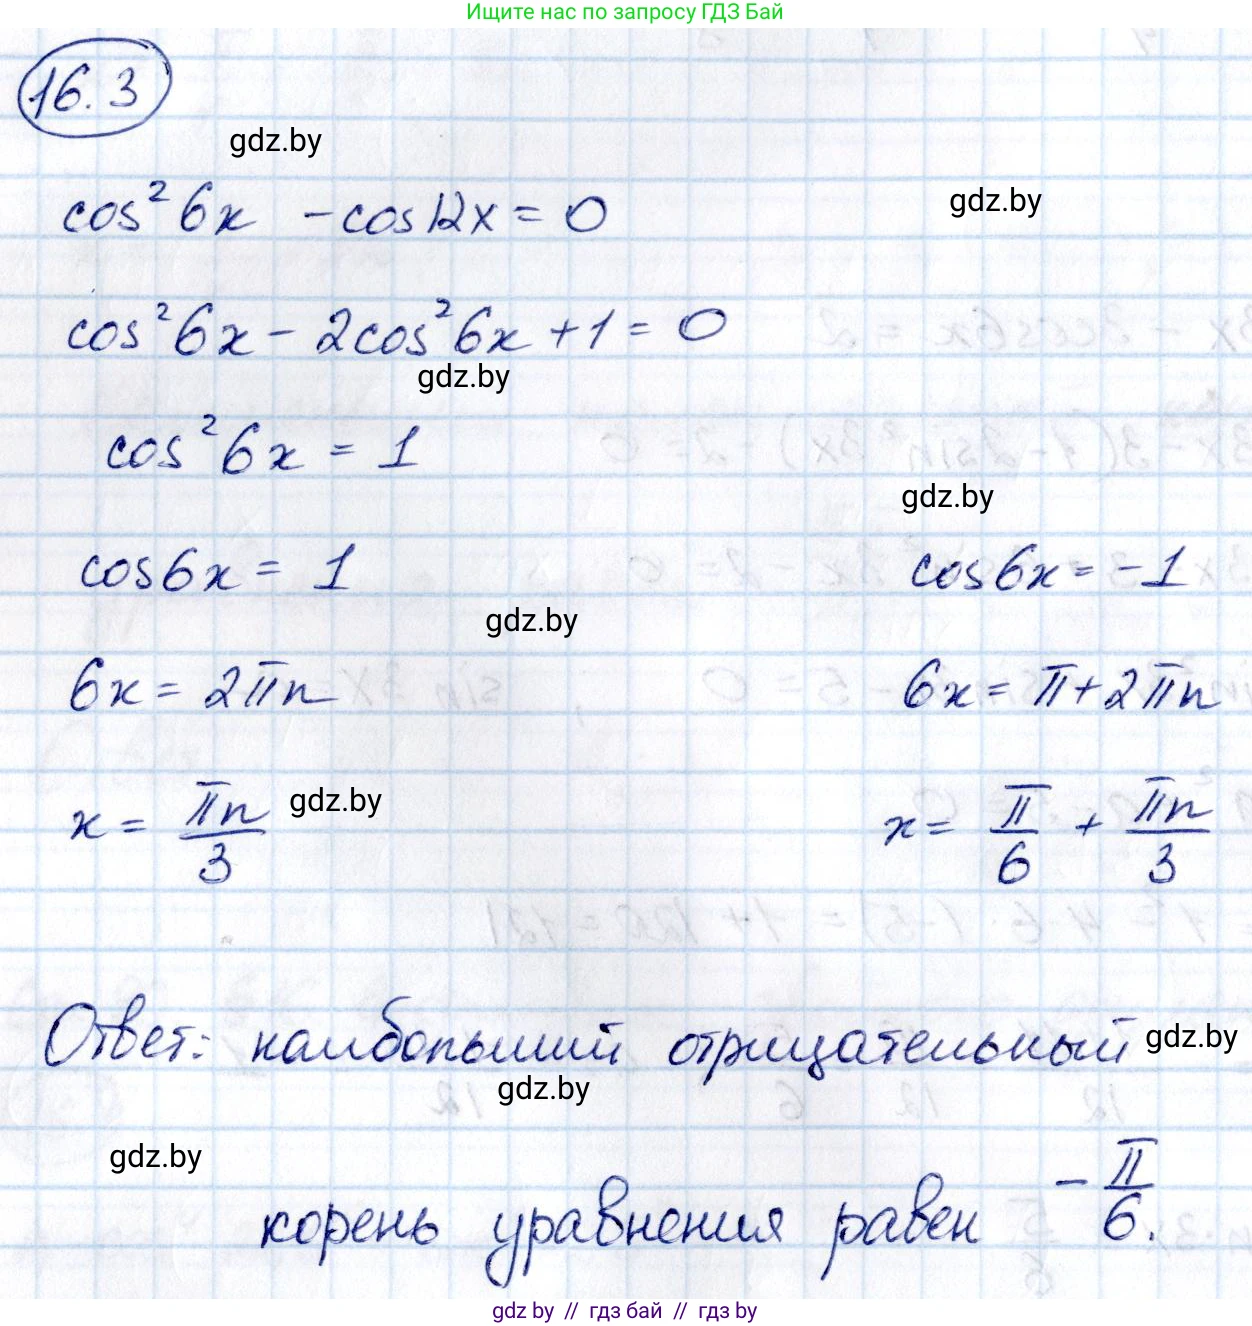 Ищите нас по запросу ГДЗ Бай
16.3
gdz.by
cos² 6x - cos 12x = 0
gdz.by
cos² 6x - 2cos² 6x + 1 = 0
gdz.by
cos² 6x = 1
gdz.by
cos 6x = 1 cos 6x = -1
gdz.by
6x = 2πn 6x = π + 2πn
x = πn/3 gdz.by x = π/6 + πn/3
Ответ: наибольший отрицательный gdz.by
gdz.by
gdz.by
корень уравнения равен -π/6.
gdz.by // гдз бай // гдз by